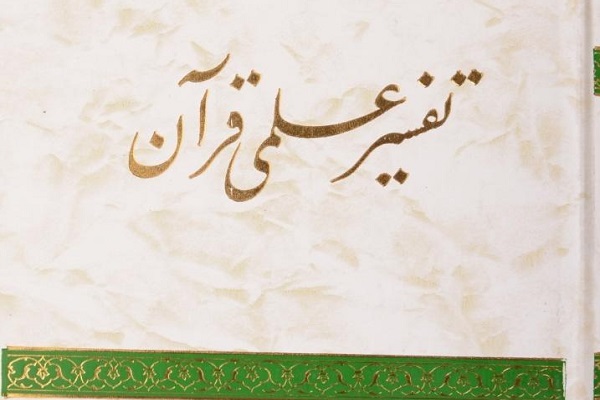 تفسیر علمی قرآن